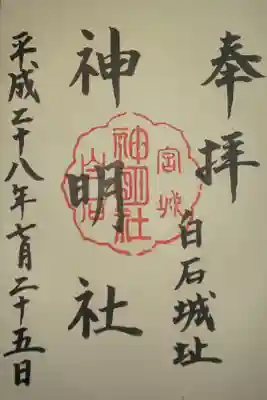 奉拝
白石城址
神明社
神明社
宮城
白石
平成二十八年七月二十五日